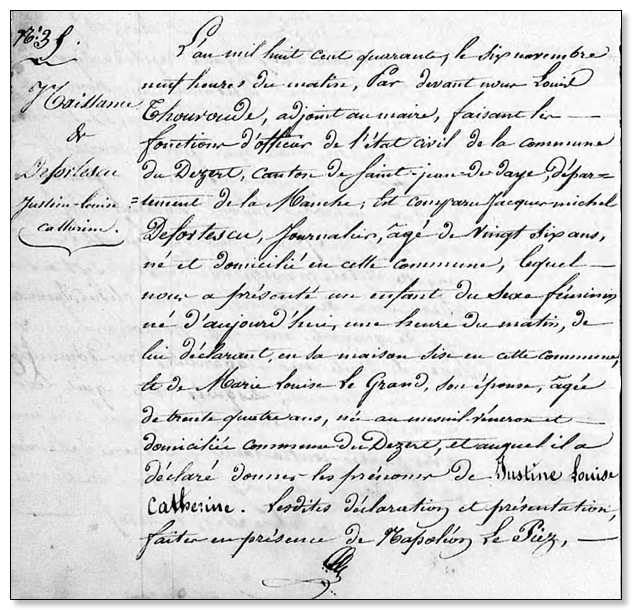 N° 35.
Naissance
de
Defortescu
Justine-louise
catherine.
L'an mil huit cent quarante, le six novembre
neuf heures du matin, Par devant nous Louis
Thouroude, adjoint au maire, faisant les
fonctions d'officier de l'état civil de la commune
du Dezert, canton de Saint-jean-de-daye, dépar=
=tement de la Manche, Est comparu Jacques michel
Defortescu, Journalier, âgé de Vingt Six ans,
né et domicilié en cette commune, lequel
nous a présenté un enfant du Sexe féminin
né d'aujourd'hui, une heure du matin, de
lui déclarant, en sa maison sise en cette commune,
et de Marie Louise Le Grand, son épouse, âgée
de trente quatre ans, née au mesnil-véneron et
domiciliée commune du Dezert, et auquel il a
déclaré donner les prénoms de Justine Louise
Catherine. Lesdites déclaration et présentation,
faites en présence de Napoléon Le Piez,